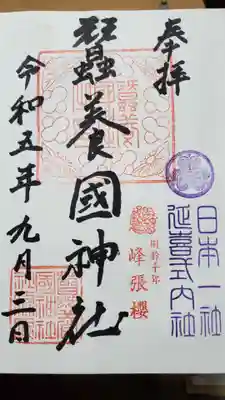 奉拝
日本一社
延喜式内社
樹齢千年
峰張櫻
蠶養國神社
令和五年九月三日